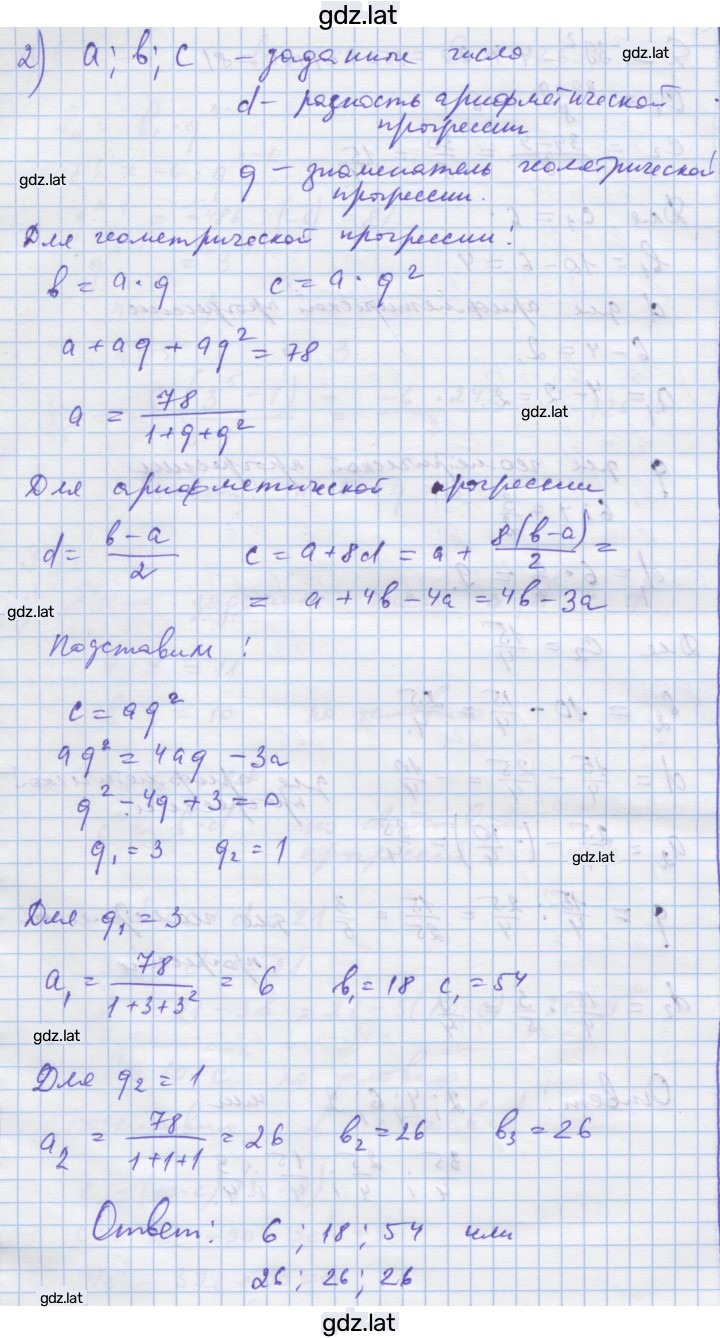 gdz.lat
2) а; в; с – заданные числа
gdz.lat
d – разность арифметической
прогрессии
gdz.lat
q – знаменатель геометрической
прогрессии.
Для геометрической прогрессии!
в = а · q    с = а · q²
а + аq + аq² = 78
а = 78 / (1+q+q²)
gdz.lat
Для арифметической прогрессии
d = (в – а) / 2    с = а + 8d = а + 8(в – а) / 2 =
= а + 4в – 4а = 4в – 3а
gdz.lat
Подставим!
с = аq²
аq² = 4аq – 3а
q² – 4q + 3 = 0
q₁ = 3    q₂ = 1
gdz.lat
Для q₁ = 3
а₁ = 78 / (1+3+3²) = 6    в₁ = 18    с₁ = 54
gdz.lat
Для q₂ = 1
а₂ = 78 / (1+1+1) = 26    в₂ = 26    в₃ = 26
Ответ: 6; 18; 54 или
26; 26; 26
gdz.lat
gdz.lat